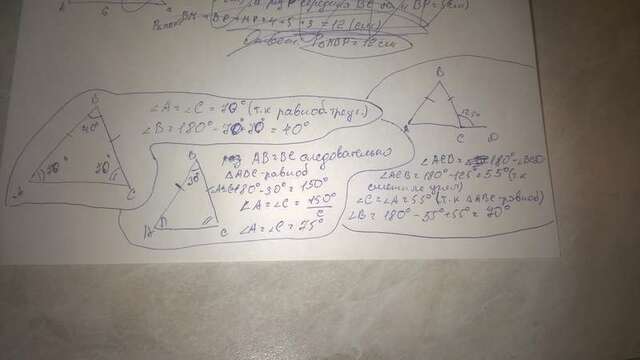 A
6
BC
и BP=5см)
=4+5+3=12 (см)
Ответ: P = 12см
B
40°
70°
70°
A
C
∠A=∠C=70° (т.к равноб. треуг.)
∠B=180°-70°-70°=40°
B
30°
A
C
AB=BC следовательно
ΔABC-равноб
180°-30°=150°
∠A=∠C=150°
2
∠A=∠C=75°
B
125°
A
C
D
180°-∠BCD
∠ACB=180°-125°=55° (т.к
смежные углы)
∠C=∠A=55° (т.к ΔABC-равноб)
∠B=180°-55°-55°=70°